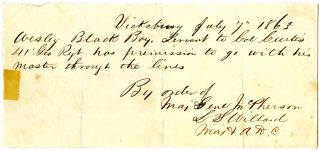 Vicksburg July 7th 1863
Wesley Black Boy. Servant to Col Curtis
41' Geo Rgt has premission to go with his
master through the lines
By order of
Maj Genl McPherson
L S Willard
Maj & A D C